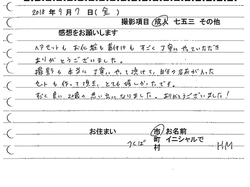 2018年9月7日(金)
撮影項目 成人 七五三 その他
感想をお願いします
ヘアセットも お化粧も 着付けも すごく丁寧にやっていただき
ありがとうございました。
撮影も 本当に丁寧にやって頂けて、お名前が入った
セットも作って頂き、とても嬉しかったです。
すごく良い20歳の思い出になりました。ありがとうございました!
お住まい つくば 市 町 村 お名前 イニシャルで HM